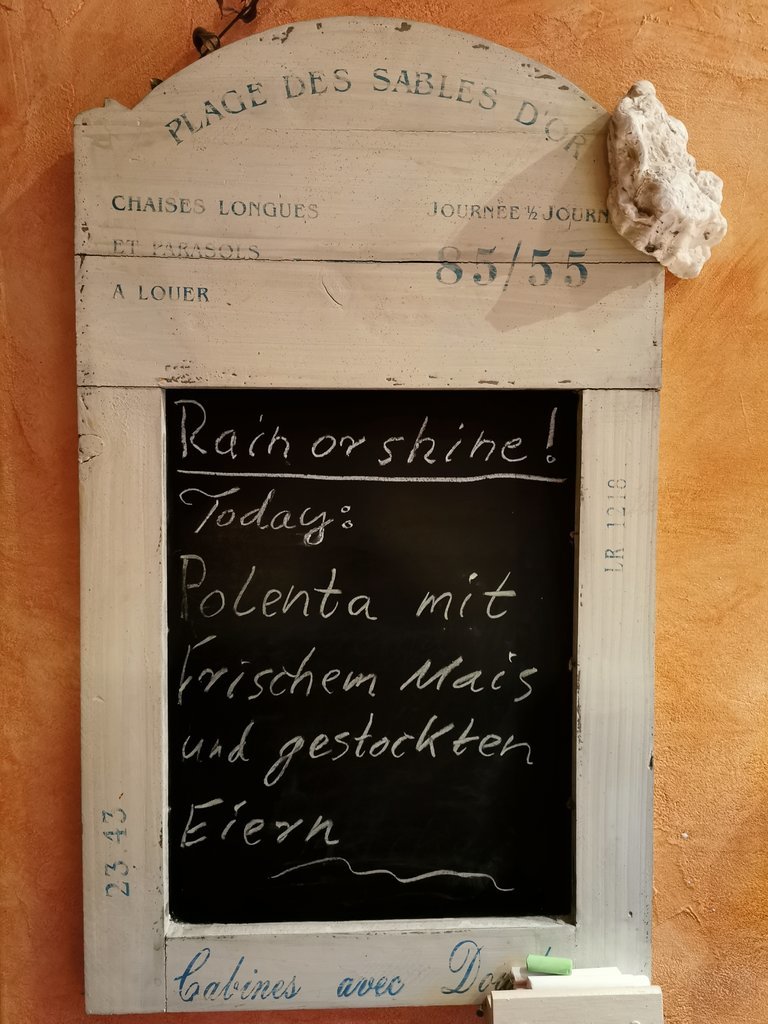 PLAGE DES SABLES D'OR
CHAISES LONGUES
ET PARASOLS
A LOUER
JOURNÉE ½ JOURN
85/55
Rain or shine!
Today:
Polenta mit
frischem Mais
und gestockten
Eiern
LR 1218
23.43
Cabines avec